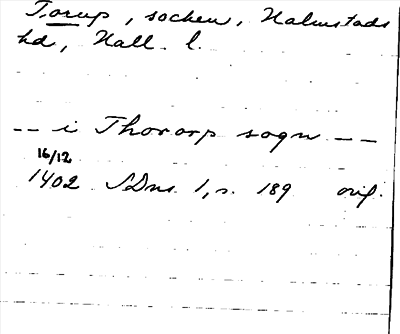 Torup, socken, Halmstads
hd, Hall. l.
-- i Thororp sogn --
16/12
1402 SDns 1, s. 189 orig.